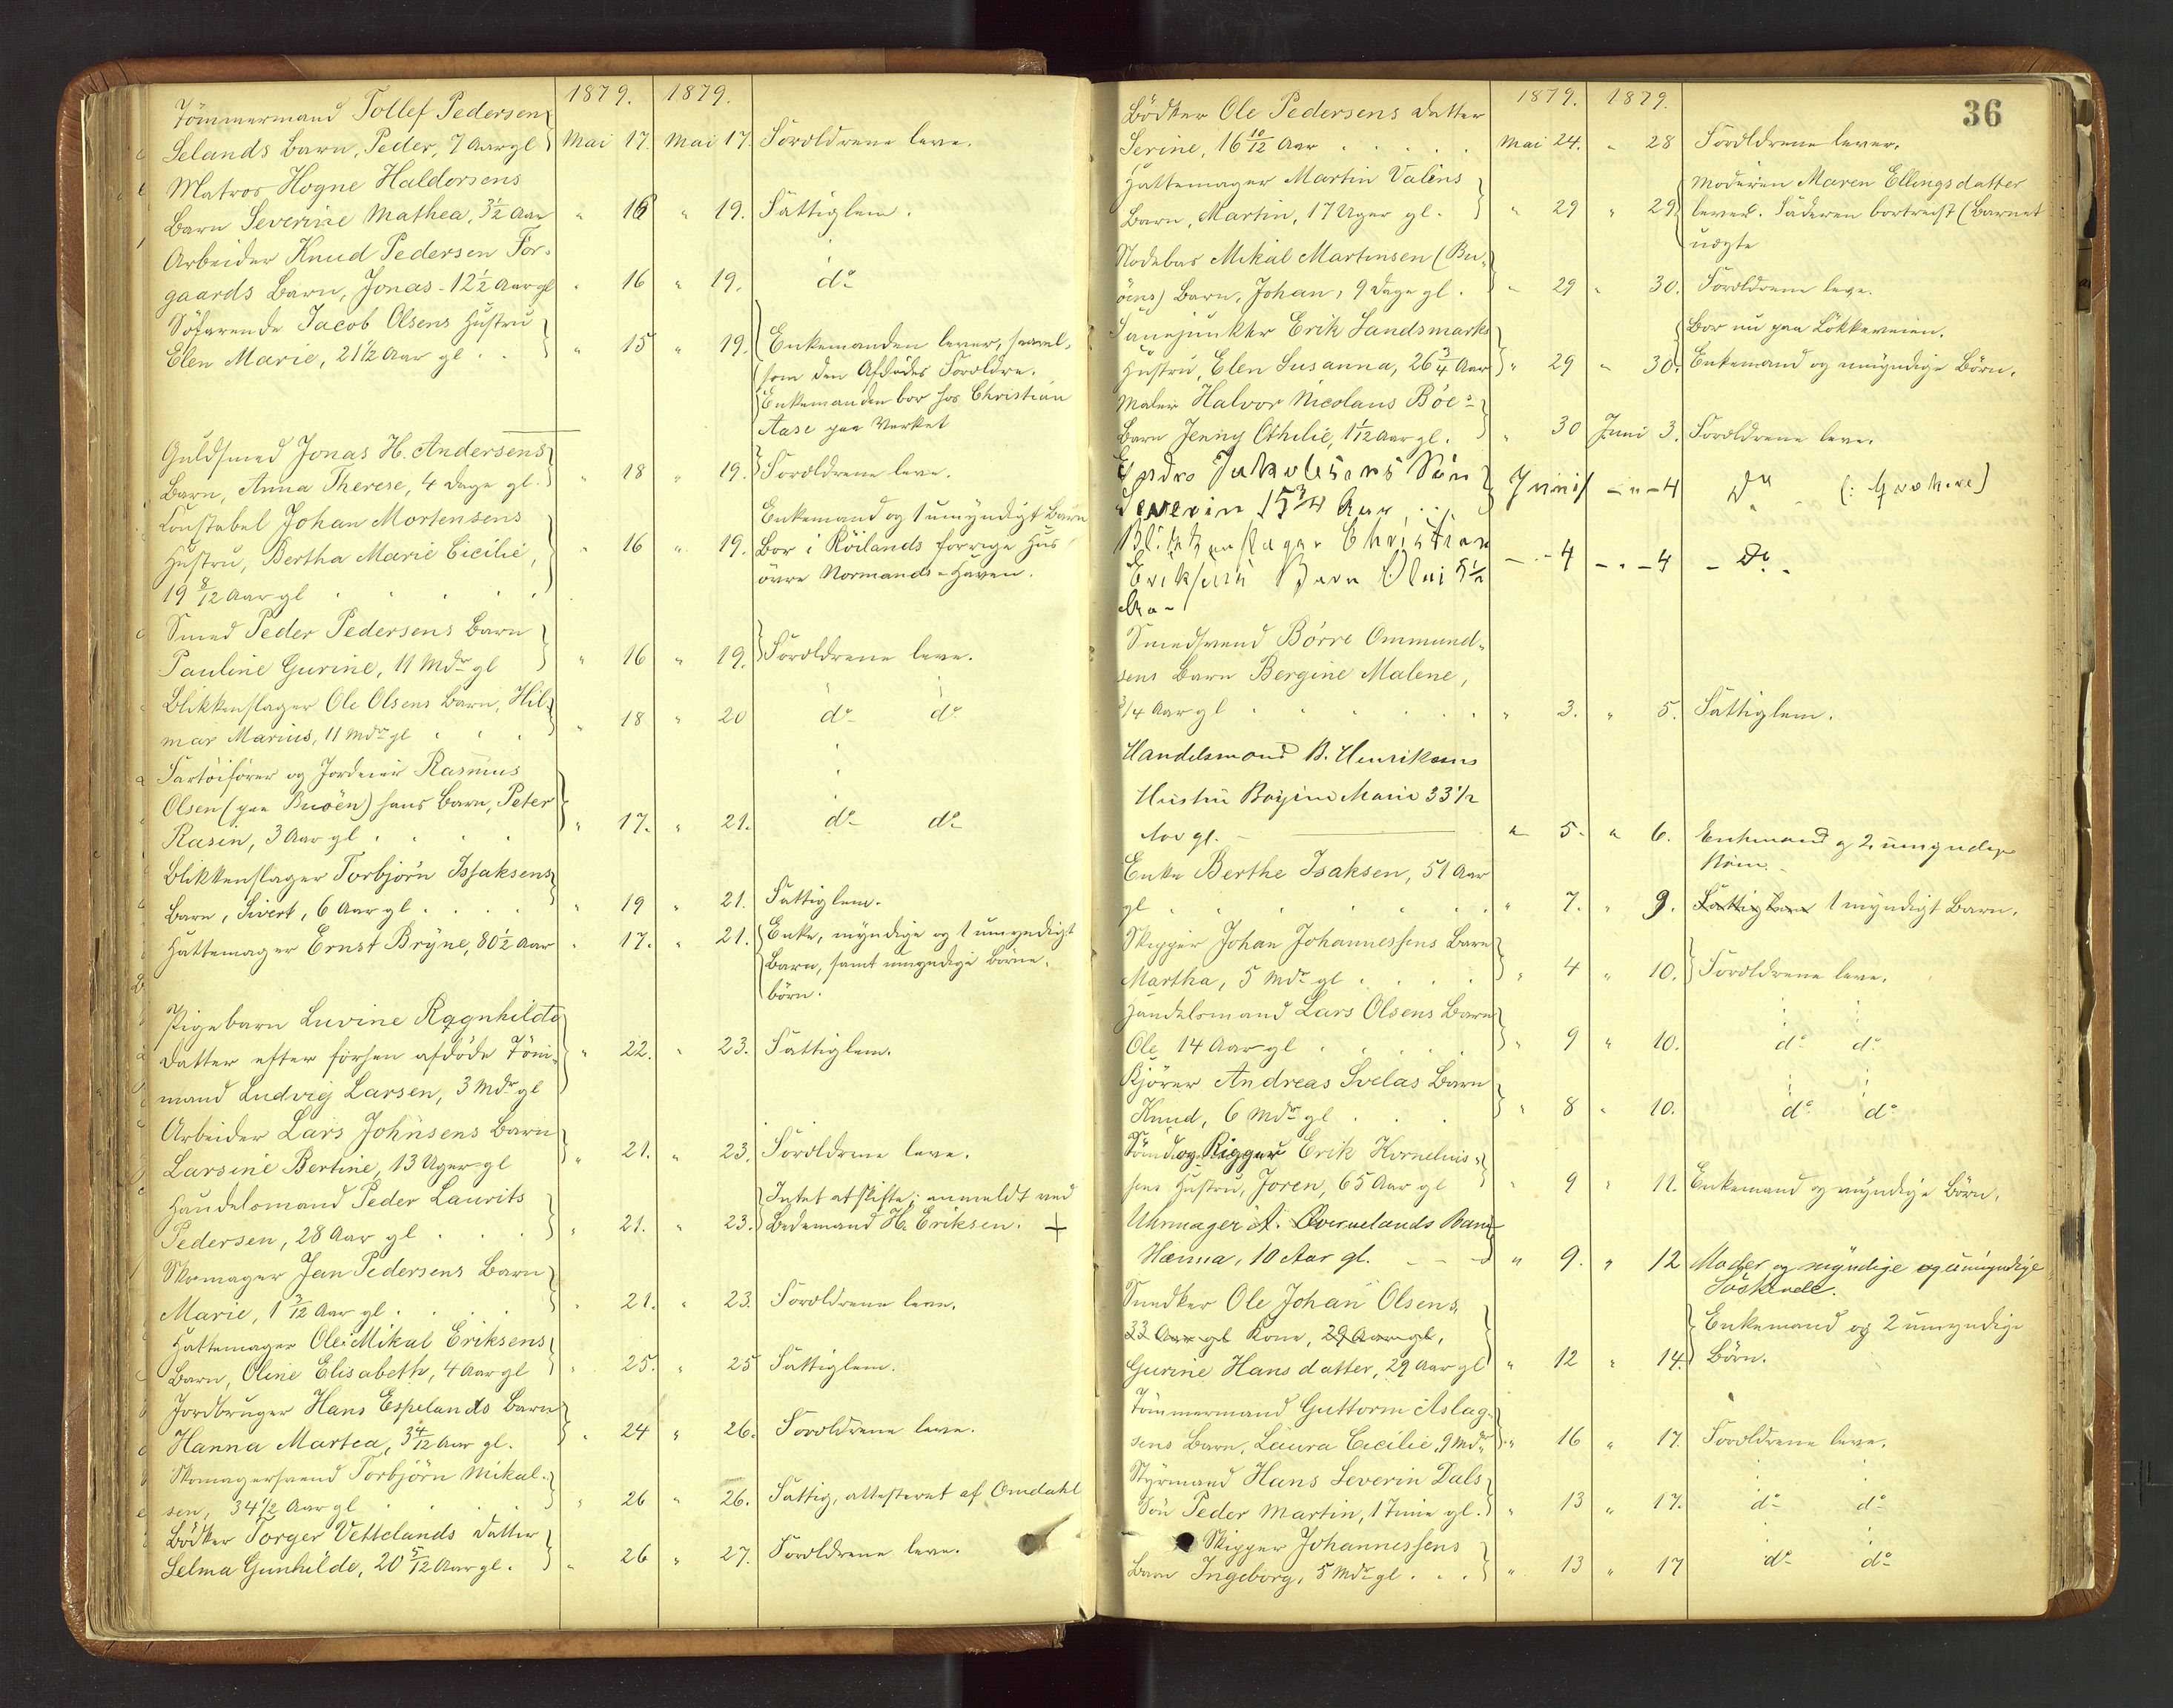 1879. 1879.
Tömmermand Tollef Pedersen
Selands Barn, Peder, 7 Aar gl Mai 17. Mai 17. Forældrene leve.
Matros Hogne Haldorsens
Barn Severine Mathea, 3 1/2 Aar " 16 " 19. Fattiglem.
Arbeider Knud Pedersen For-
gaards Barn, Jonas - 12 1/2 Aar gl " 16 " 19. do
Söfarende Jacob Olsens Hustru
Elen Marie, 21 1/2 Aar gl . . " 15 " 19. Enkemanden lever, saavel-
som den Afdödes Forældre.
Enkemanden bor hos Christian
Aase paa Verket
Guldsmed Jonas H. Andersens
Barn, Anna Therese, 4 Dage gl. " 18 " 19. Forældrene leve.
Konstabel Johan Mortensens Enkemand og 1 umyndigt Barn
Hustru, Bertha Marie Cicilie, " 16 " 19. Bor i Röilands forrige Hus
19 8/12 Aar gl . . . . . övre Normands-Haven.
Smed Peder Pedersens Barn
Pauline Gurine, 11 Mdr gl " 16 " 19. Forældrene leve.
Blikkenslager Ole Olsens Barn, Hil-
mar Marius, 11 Mdr gl . . . " 18 " 20 do do
Fartöiförer og Jordeier Rasmus
Olsen (paa Buöen) hans Barn, Peter
Rasin, 3 Aar gl . . . . " 17. " 21. do do
Blikkenslager Torbjörn Isaksens
Barn, Sivert, 6 Aar gl . . . . " 19 " 21. Fattiglem.
Hattemager Ernst Bryne, 80 1/2 Aar " 17. " 21. Enke, myndige og 1 umyndigt
Barn, samt umyndige Börne-
börn.
Pigebarn Luvine Ragnhilde
Datter efter forhen afdöde Töm-
mand Ludvig Larsen, 3 Mdr gl " 22. " 23. Fattiglem.
Arbeider Lars Johnsens Barn
Larsine Bertine, 13 Uger gl " 21. " 23. Forældrene leve.
Handelsmand Peder Laurits Intet at skifte; anmeldt ved
Pedersen, 28 Aar gl . . . " 21. " 23. Bedemand H. Eriksen. +
Skomager Jan Pedersens Barn
Marie, 1 3/12 Aar gl . . . . " 21. " 23. Forældrene leve.
Hattemager Ole Mikal Eriksens
Barn, Oline Elisabeth, 4 Aar gl " 25. " 25 Fattiglem.
Jordbruger Hans Espelands Barn
Hanna Martea, 3 4/12 Aar gl. " 24 " 26. Forældrene leve.
Skomagersvend Torbjörn Mikal-
sen, 34 1/2 Aar gl . . . . " 26 " 26. Fattig, attesteret af Omdahl
Bödker Torger Vettelands Datter
Selma Gunhilde, 20 5/12 Aar gl. " 26 " 27. Forældrene leve.
1879. 1879. 36
Bödker Ole Pedersens Datter
Serine, 16 10/12 Aar . . . . . Mai 24. " 28 Forældrene lever.
Hattemager Martin Valens Moderen Maren Ellingsdatter
Barn, Martin, 17 Uger gl. " 29 " 29 lever. Faderen bortreist (Barnet
uægte
Nodebas Mikal Martinsen (Bu-
öens) Barn, Johan, 9 Dage gl. " 29 " 30. Forældrene leve.
Fanejunker Erik Landsmarks Bor nu paa Lökkeveien.
Hustru, Elen Susanna, 26 3/4 Aar " 29 " 30. Enkemand og umyndige Börn.
Maler Halvor Nicolaus Böe's
Barn Jenny Othilie, 1 1/12 Aar gl. " 30 Juni 3. Forældrene leve.
Jakobsens Sön
Severin 15 3/4 Aar . . Juni 1 - " - 4 Do
Blikkenslager Christian
Eriksens Barn Olai 5 1/2 - " - 4 - " - 4 - Do -
Aar
Smedsvend Börre Ommund-
sens Barn Bergine Malene,
3/4 Aar gl . . . . . . " 3. " 5. Fattiglem.
Handelsmand B. Henriksens
Hustru Marie 33 1/2
Aar gl. " 5. " 6. Enkemand og 2 umyndige
Börn.
Enke Berthe Isaksen, 51 Aar
gl . . . . . . " 7. " 9. Fattiglem 1 myndigt Barn.
Skipper Johan Johannessens Barn
Martha, 5 Mdr gl . . . . " 4 " 10. Forældrene leve.
Handelsmand Lars Olsens Barn
Ole, 14 Aar gl . . . . . " 9 " 10. do do
Kjörer Andreas Svelas Barn
Knud, 6 Mdr gl . . . " 8 " 10. do do
Tömd og Rigger Erik Kornelius-
sens Hustru, Joren, 65 Aar gl " 9 " 11. Enkemand og myndige Börn.
Uhrmager A. Barn
Hanna, 10 Aar gl. - - - " 9. " 12 Moder og myndige og umyndige
Söskende.
Snedker Ole Johan Olsens
33 Aar gl Kone, 29 Aar gl, Enkemand og 2 umyndige
Gurine Hansdatter, 29 Aar gl " 12 " 14. Börn.
Tömmermand Guttorm Aslag-
sens Barn, Laura Cicilie, 9 Mdr " 16 " 17. Forældrene leve.
Styrmand Hans Severin Dals
Sön Peder Martin, 1 Time gl. " 13 " 17. do do
Skipper Johannessens
Barn Ingeborg, 5 Mdr gl . . . " 13 " 17 do do